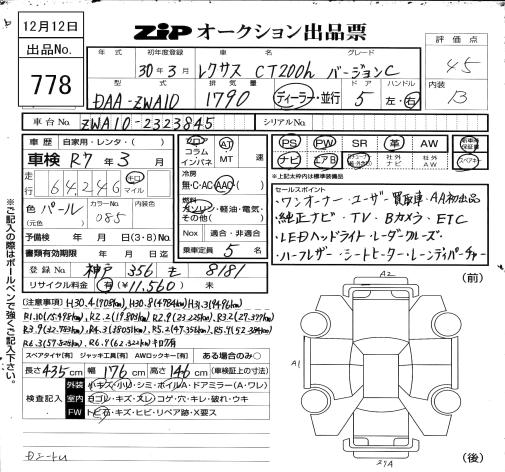 12月12日
ZIP オークション出品票
出品No.
778
年式 初年度登録 車名 グレード
30年3月 レクサス CT200h バージョンC
評価点
4.5
型式 排気量 ドア ハンドル
DAA-ZWA10 1790 ディーラー・並行 5 左・右
内装
B
車台No. ZWA10-2323845 シリアルNo.
車歴 自家用・レンタ・( )
車検 R7年3月
走行 64,246 キロ マイル
色 パール (元色) カラーNo. 085 内装色
予備検 年 月 日(3・8)No.
書類有効期限 年 月 日
フロア コラム インパネ AT MT 速
冷房 無・C・AC・AAC
燃料 ガソリン・軽油・電気・その他( )
Nox 適合・非適合
乗車定員 5 名
PS PW SR 革 AW 新車時保証書
ナビ エアB 社外ナビ 社外AW スペアキー
※上記太枠内は標準装備品
セールスポイント
・ワンオーナー・ユーザー買取車・AA初出品
・純正ナビ・TV・Bカメラ・ETC
・LEDヘッドライト・レーダークルーズ・
・ハーフレザー・シートヒーター・レーンディパーチャー
登録No. 神戸 356 モ 8181
リサイクル料金 有(¥11,560) 未
(注意事項) H30.4(908km) H30.8(4784km) H31.3(9486km)
R1.10(15,498km) R2.2(19,809km) R2.9(23,225km) R3.2(27,377km)
R3.9(32,783km) R4.3(38051km) R5.2(47,356km) R5.9(52,384km)
R6.3(57,828km) R6.9(62,322km)キロ有
スペアタイヤ[有] ジャッキ工具[有] AWロックキー[有] ある場合のみ○
長さ 435cm 幅 176cm 高さ 146cm (車検証上の寸法)
検査記入
外装 小キズ・小凹・シミ・ボイルA・ドアミラー(A・ワレ)
室内 ヨゴレ・キズ・スレ・コゲ・穴・キレ・破れ・ウキ
FW トビ石・キズ・ヒビ・リペア跡・X要ス
(前)
A2
A1
(後)
※ご記入の際はボールペンで強くご記入下さい。